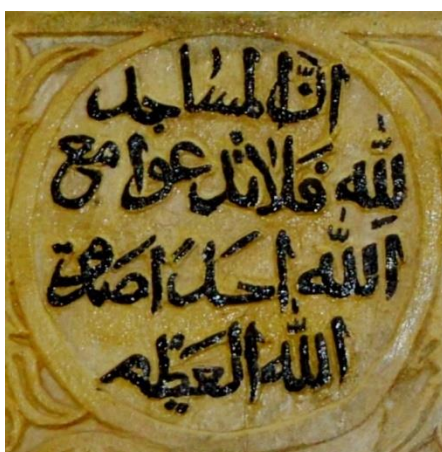 انّ المساجد
لله فلا تدعوا مع
الله احدَا صدق
الله العظيم